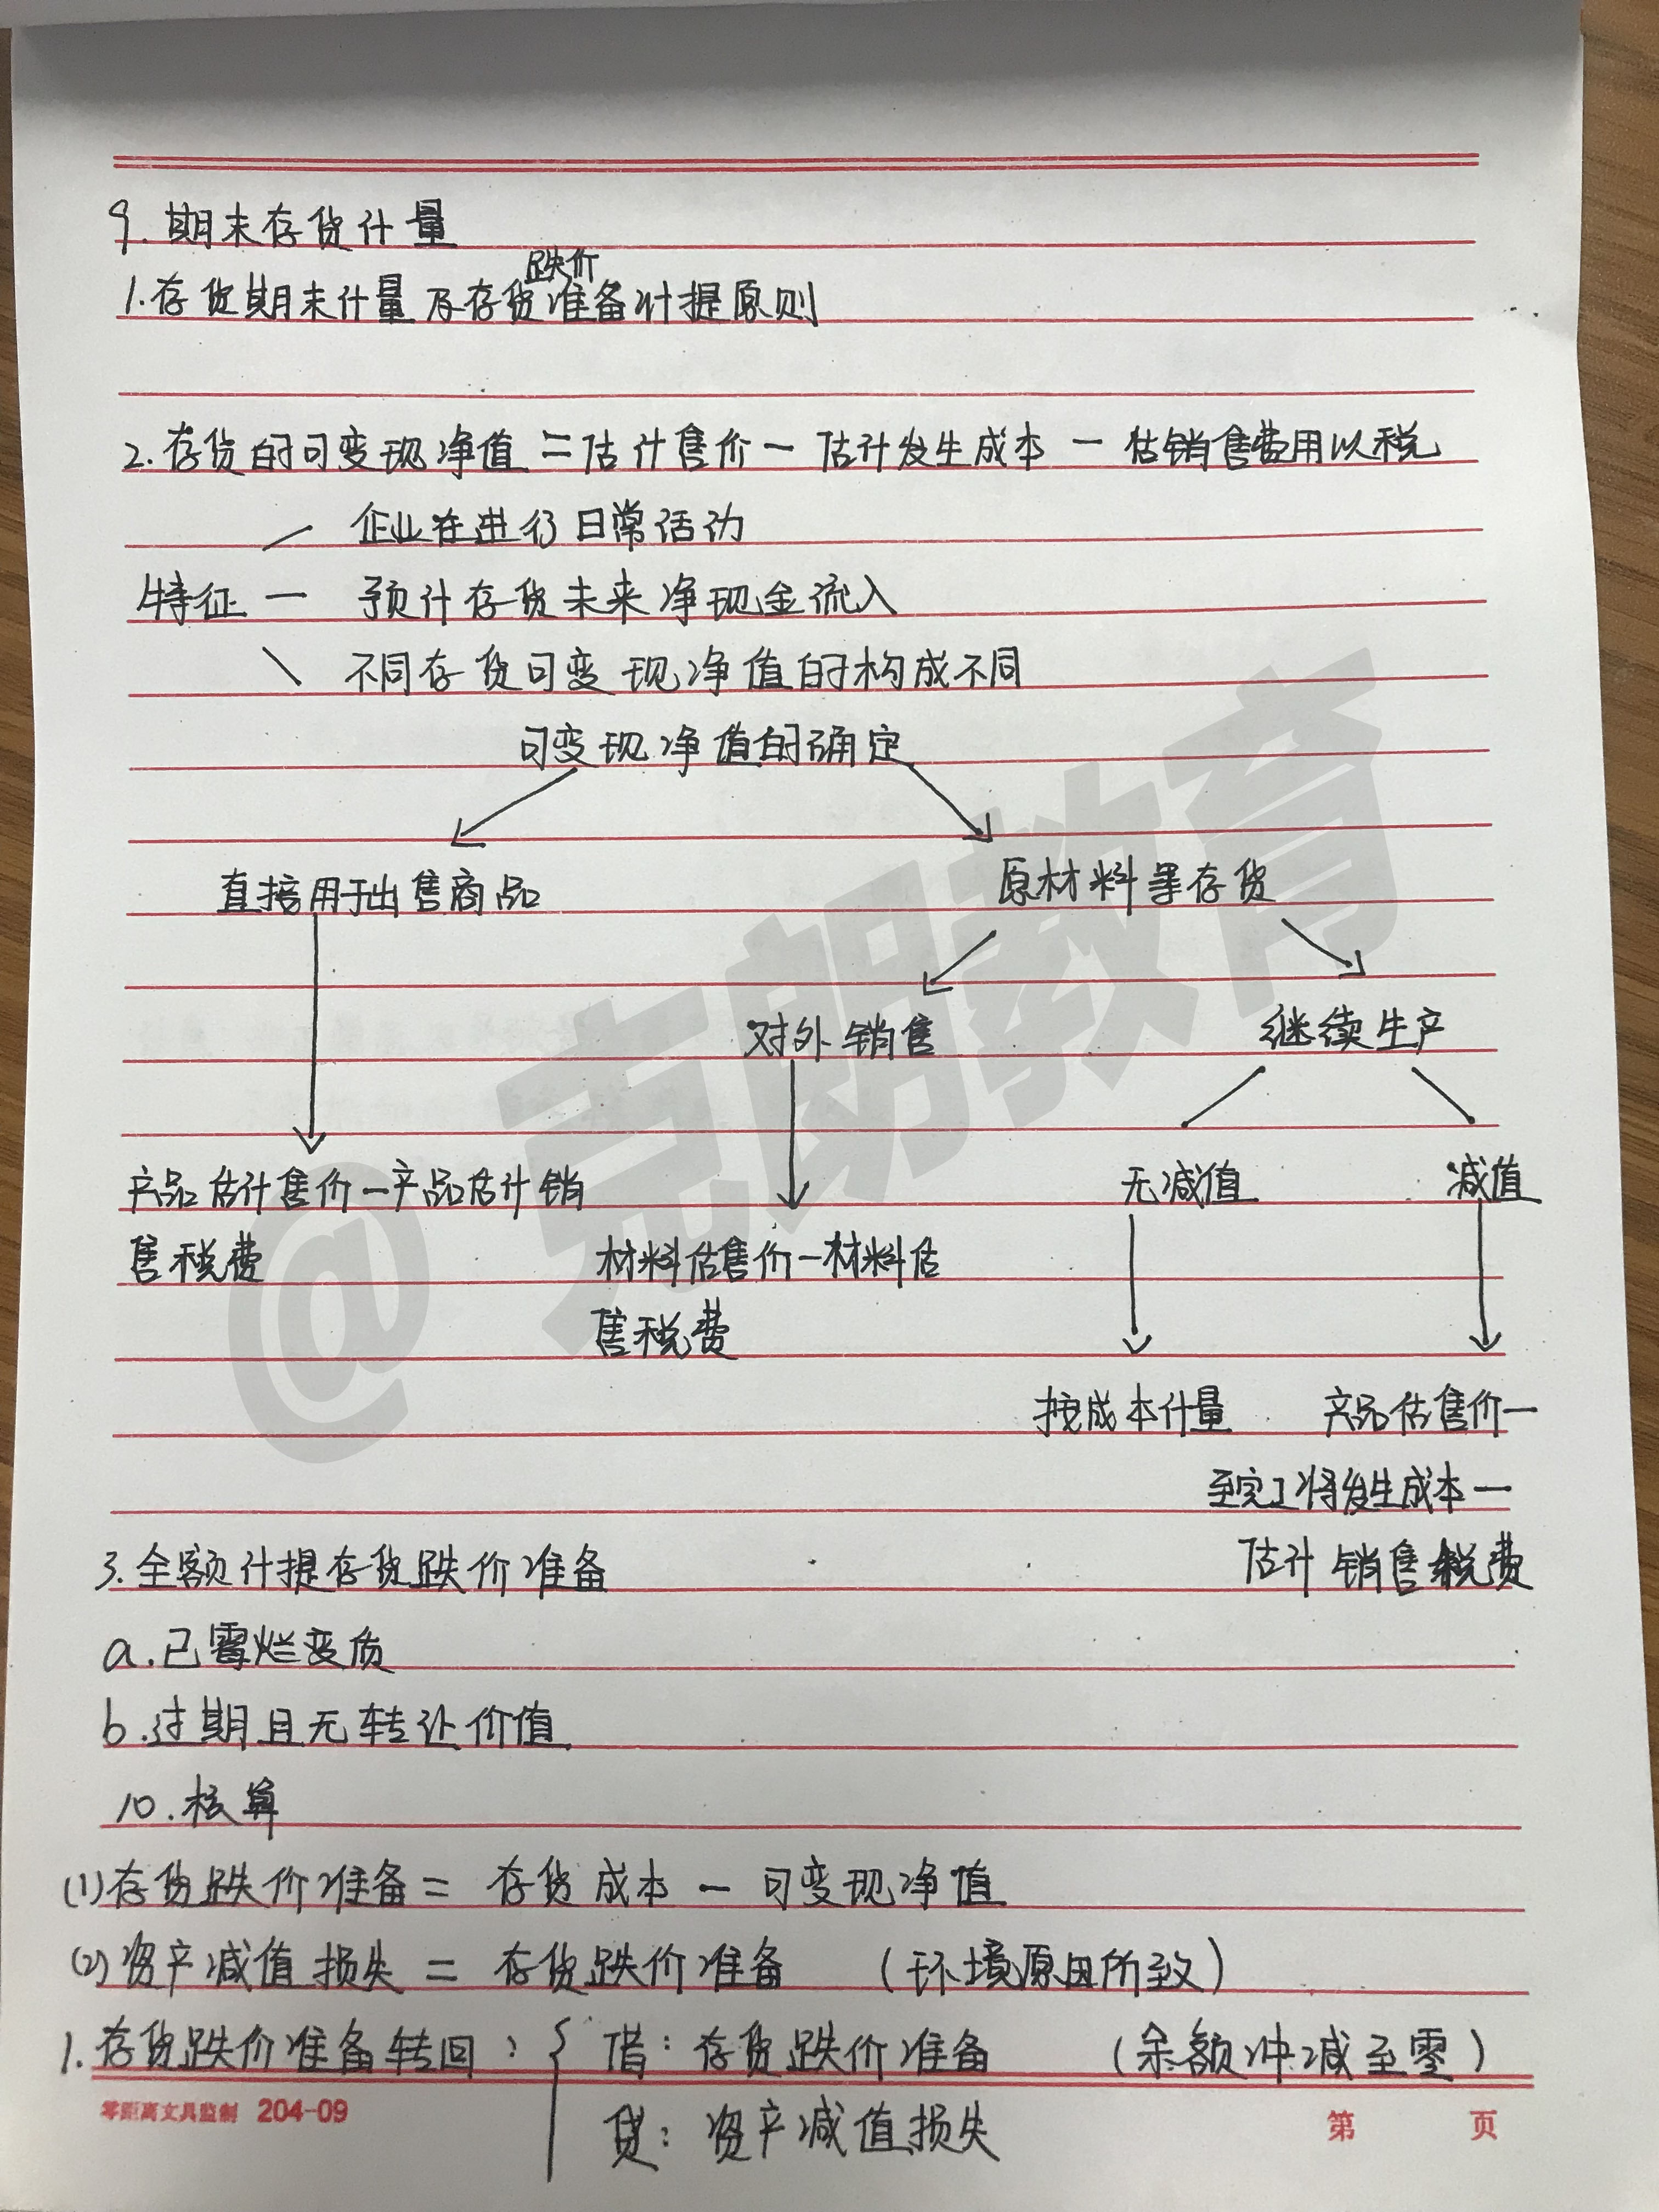 9. 期末存货计量
1. 存货期末计量及存货跌价准备计提原则
2. 存货的可变现净值 = 估计售价 - 估计发生成本 - 估销售费用以税
企业在进行日常活动
特征 - 预计存货未来净现金流入
不同存货可变现净值的构成不同
可变现净值的确定
直接用于出售商品 原材料等存货
对外销售 继续生产
产品估计售价-产品估计销 无减值 减值
售税费 材料估售价-材料估
售税费
按成本计量 产品估售价-
至完工将发生成本-
3. 全额计提存货跌价准备 估计销售税费
a. 已霉烂变质
b. 过期且无转让价值
10. 核算
(1) 存货跌价准备 = 存货成本 - 可变现净值
(2) 资产减值损失 = 存货跌价准备 (环境原因所致)
1. 存货跌价准备转回: { 借: 存货跌价准备 (余额冲减至零)
零距离文具监制 204-09 第 页
贷: 资产减值损失
@克朗教育